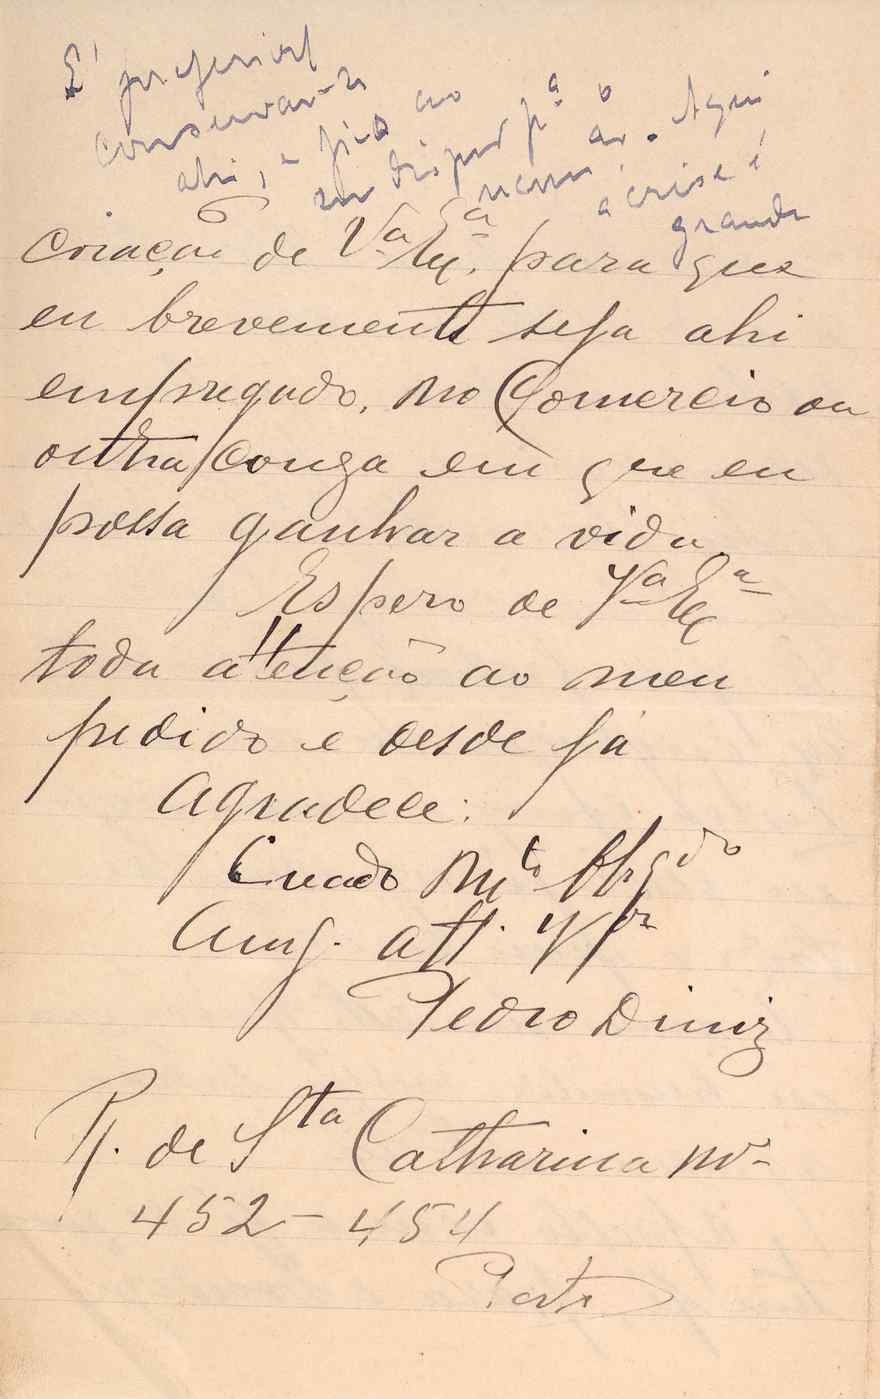 E' preferivel
conservar-se
ahi, e fico ao
seu dispor pª o
que
nesse. Aqui
a crise é
grande
coração de Vª Exª. para que
eu brevemente seja ahi
empregado, no Comercio ou
outra couza em que eu
possa ganhar a vida.
Espero de Vª Exª
toda attenção ao meu
pedido e desde já
Agradece:
Creado Mtº Obrgdo
Amg. att. Vor
Pedro Diniz
R. de Sta Catharina nº
452 – 454
Porto